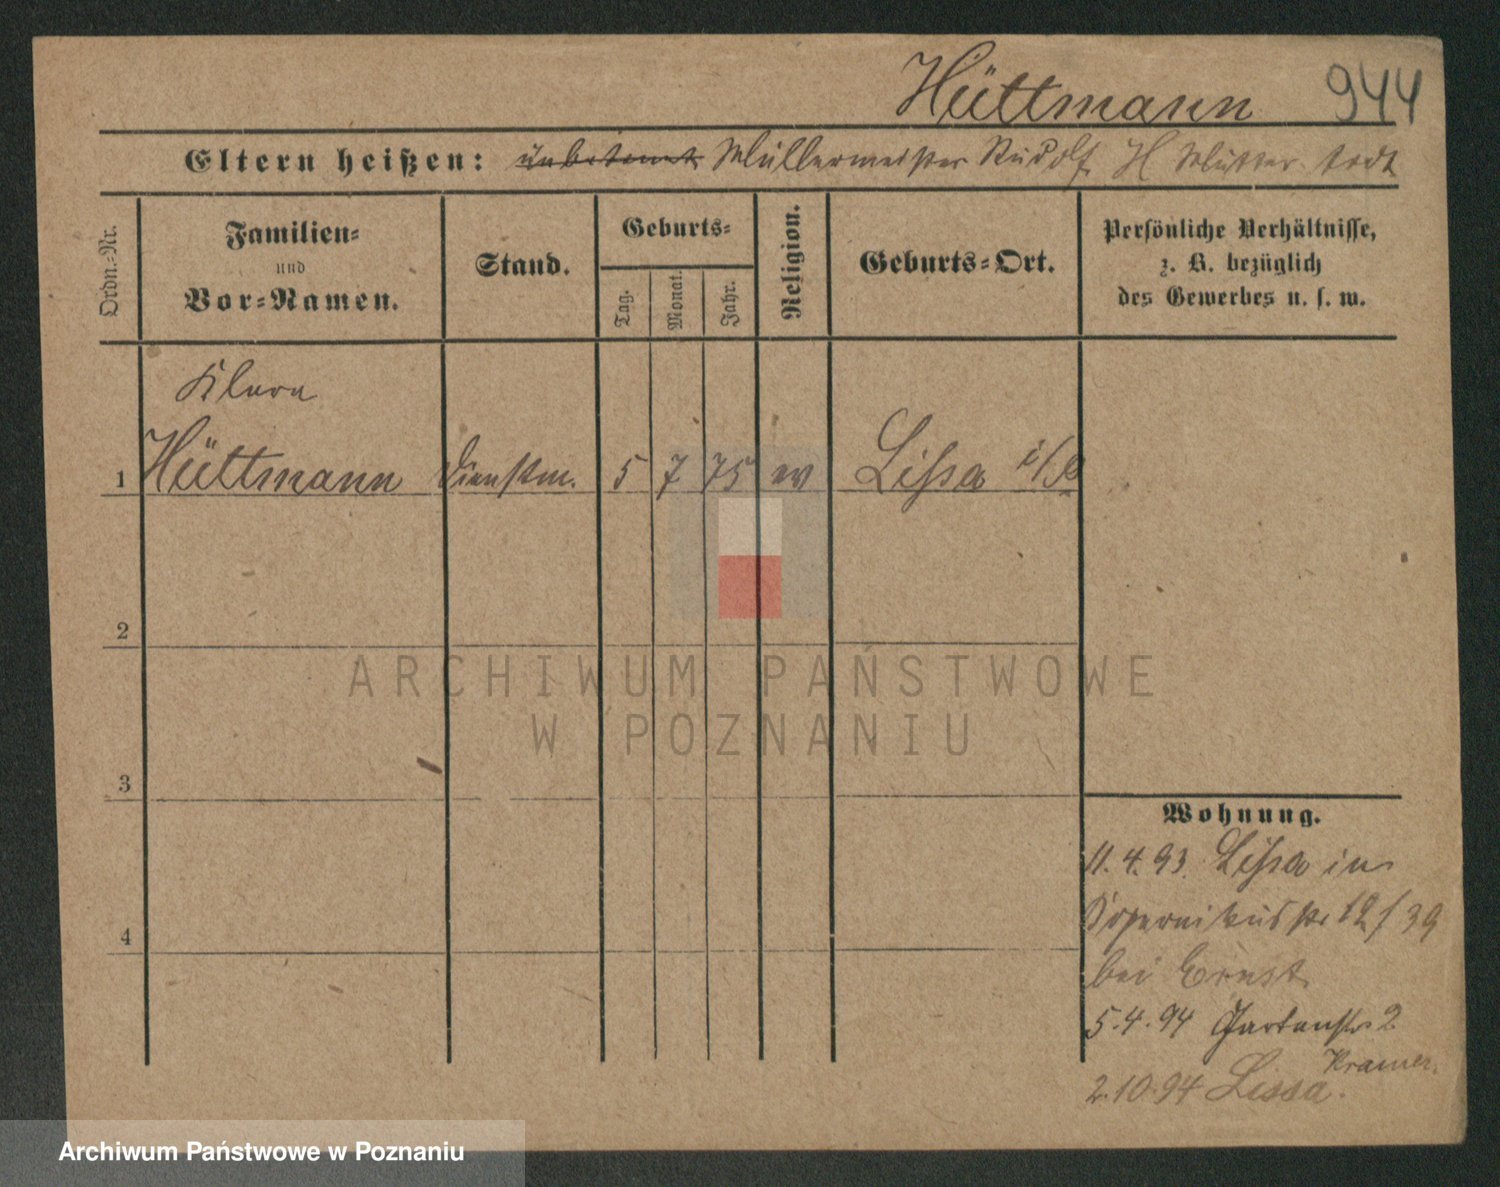 Hüttmann 944
Eltern heißen: unbekannt Müllermeister Rudolf H Mutter todt
Ordn.-Nr.
Familien-
und
Vor-Namen.
Stand.
Geburts-
Tag.
Monat.
Jahr.
Religion.
Geburts-Ort.
Persönliche Verhältnisse,
z. B. bezüglich
des Gewerbes u. s. w.
Klara
1 Hüttmann Dienstm. 5 7 75 ev Lissa i/P
2
ARCHIWUM PAŃSTWOWE
W POZNANIU
3
Wohnung.
11.4.93. Lissa in
Kopernikusstr 12/39
4
bei Ernst
5.4.94 Gartenstr 2
Kramer.
2.10.94 Lissa.
Archiwum Państwowe w Poznaniu